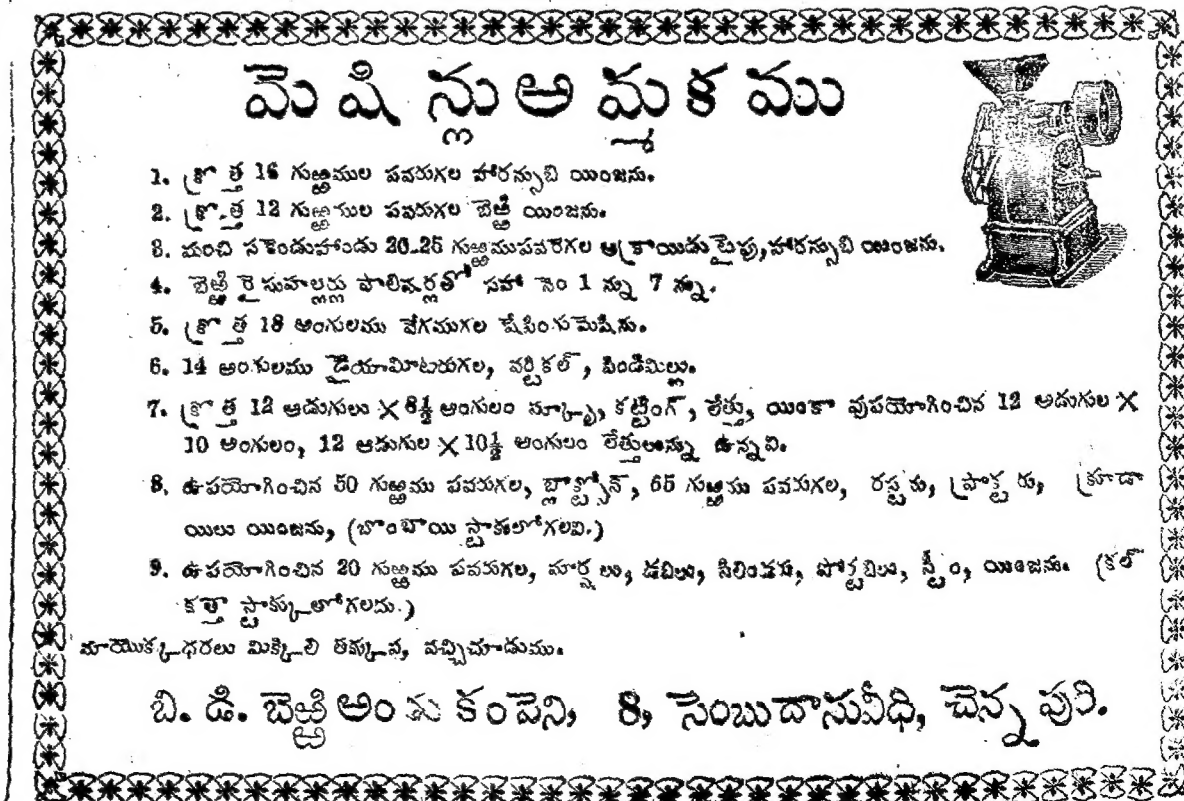 మెషిన్లు అమ్మకము
1. క్రొత్త 16 గుఱ్ఱముల పవరుగల హారన్సుబి యింజను.
2. క్రొత్త 12 గుఱ్ఱముల పవరుగల బెఱ్ఱి యింజను.
3. మంచి సకెండుహాండు 20-25 గుఱ్ఱముపవరుగల ఆక్రాయిడుటైపు, హారన్సుబి యింజను.
4. బెఱ్ఱి రైసుహల్లర్లు పాలిషర్లతో సహా నెం 1 న్ను 7 న్ను.
5. క్రొత్త 18 అంగులము వేగముగల షేపింగుమెషీను.
6. 14 అంగులము డైయామీటరుగల, వర్టికల్, పిండిమిల్లు.
7. క్రొత్త 12 ఆడుగులు X 8½ అంగులం స్క్రూ, కట్టింగ్, లేత్తు, యింకా వుపయోగించిన 12 అడుగుల X
10 అంగులం, 12 ఆడుగుల X 10½ అంగులం లేత్తులున్ను ఉన్నవి.
8. ఉపయోగించిన 50 గుఱ్ఱము పవరుగల, బ్లాక్స్టోన్, 65 గుఱ్ఱము పవరుగల, రస్టకు, ప్రొక్టరు, క్రూడా
యిలు యింజను, (బొంబాయి స్టాకులోగలవి.)
9. ఉపయోగించిన 20 గుఱ్ఱము పవరుగల, మార్షలు, డబిలు, సిలిండరు, పోర్టబిలు, స్టీం, యింజను. (కల్
కత్తా స్టాక్కులోగలదు.)
మాయొక్క ధరలు మిక్కిలి తక్కువ, వచ్చిచూడుము.
బి. డి. బెఱ్ఱి అండు కంపెని, 8, సెంబుదాసువీధి, చెన్నపురి.